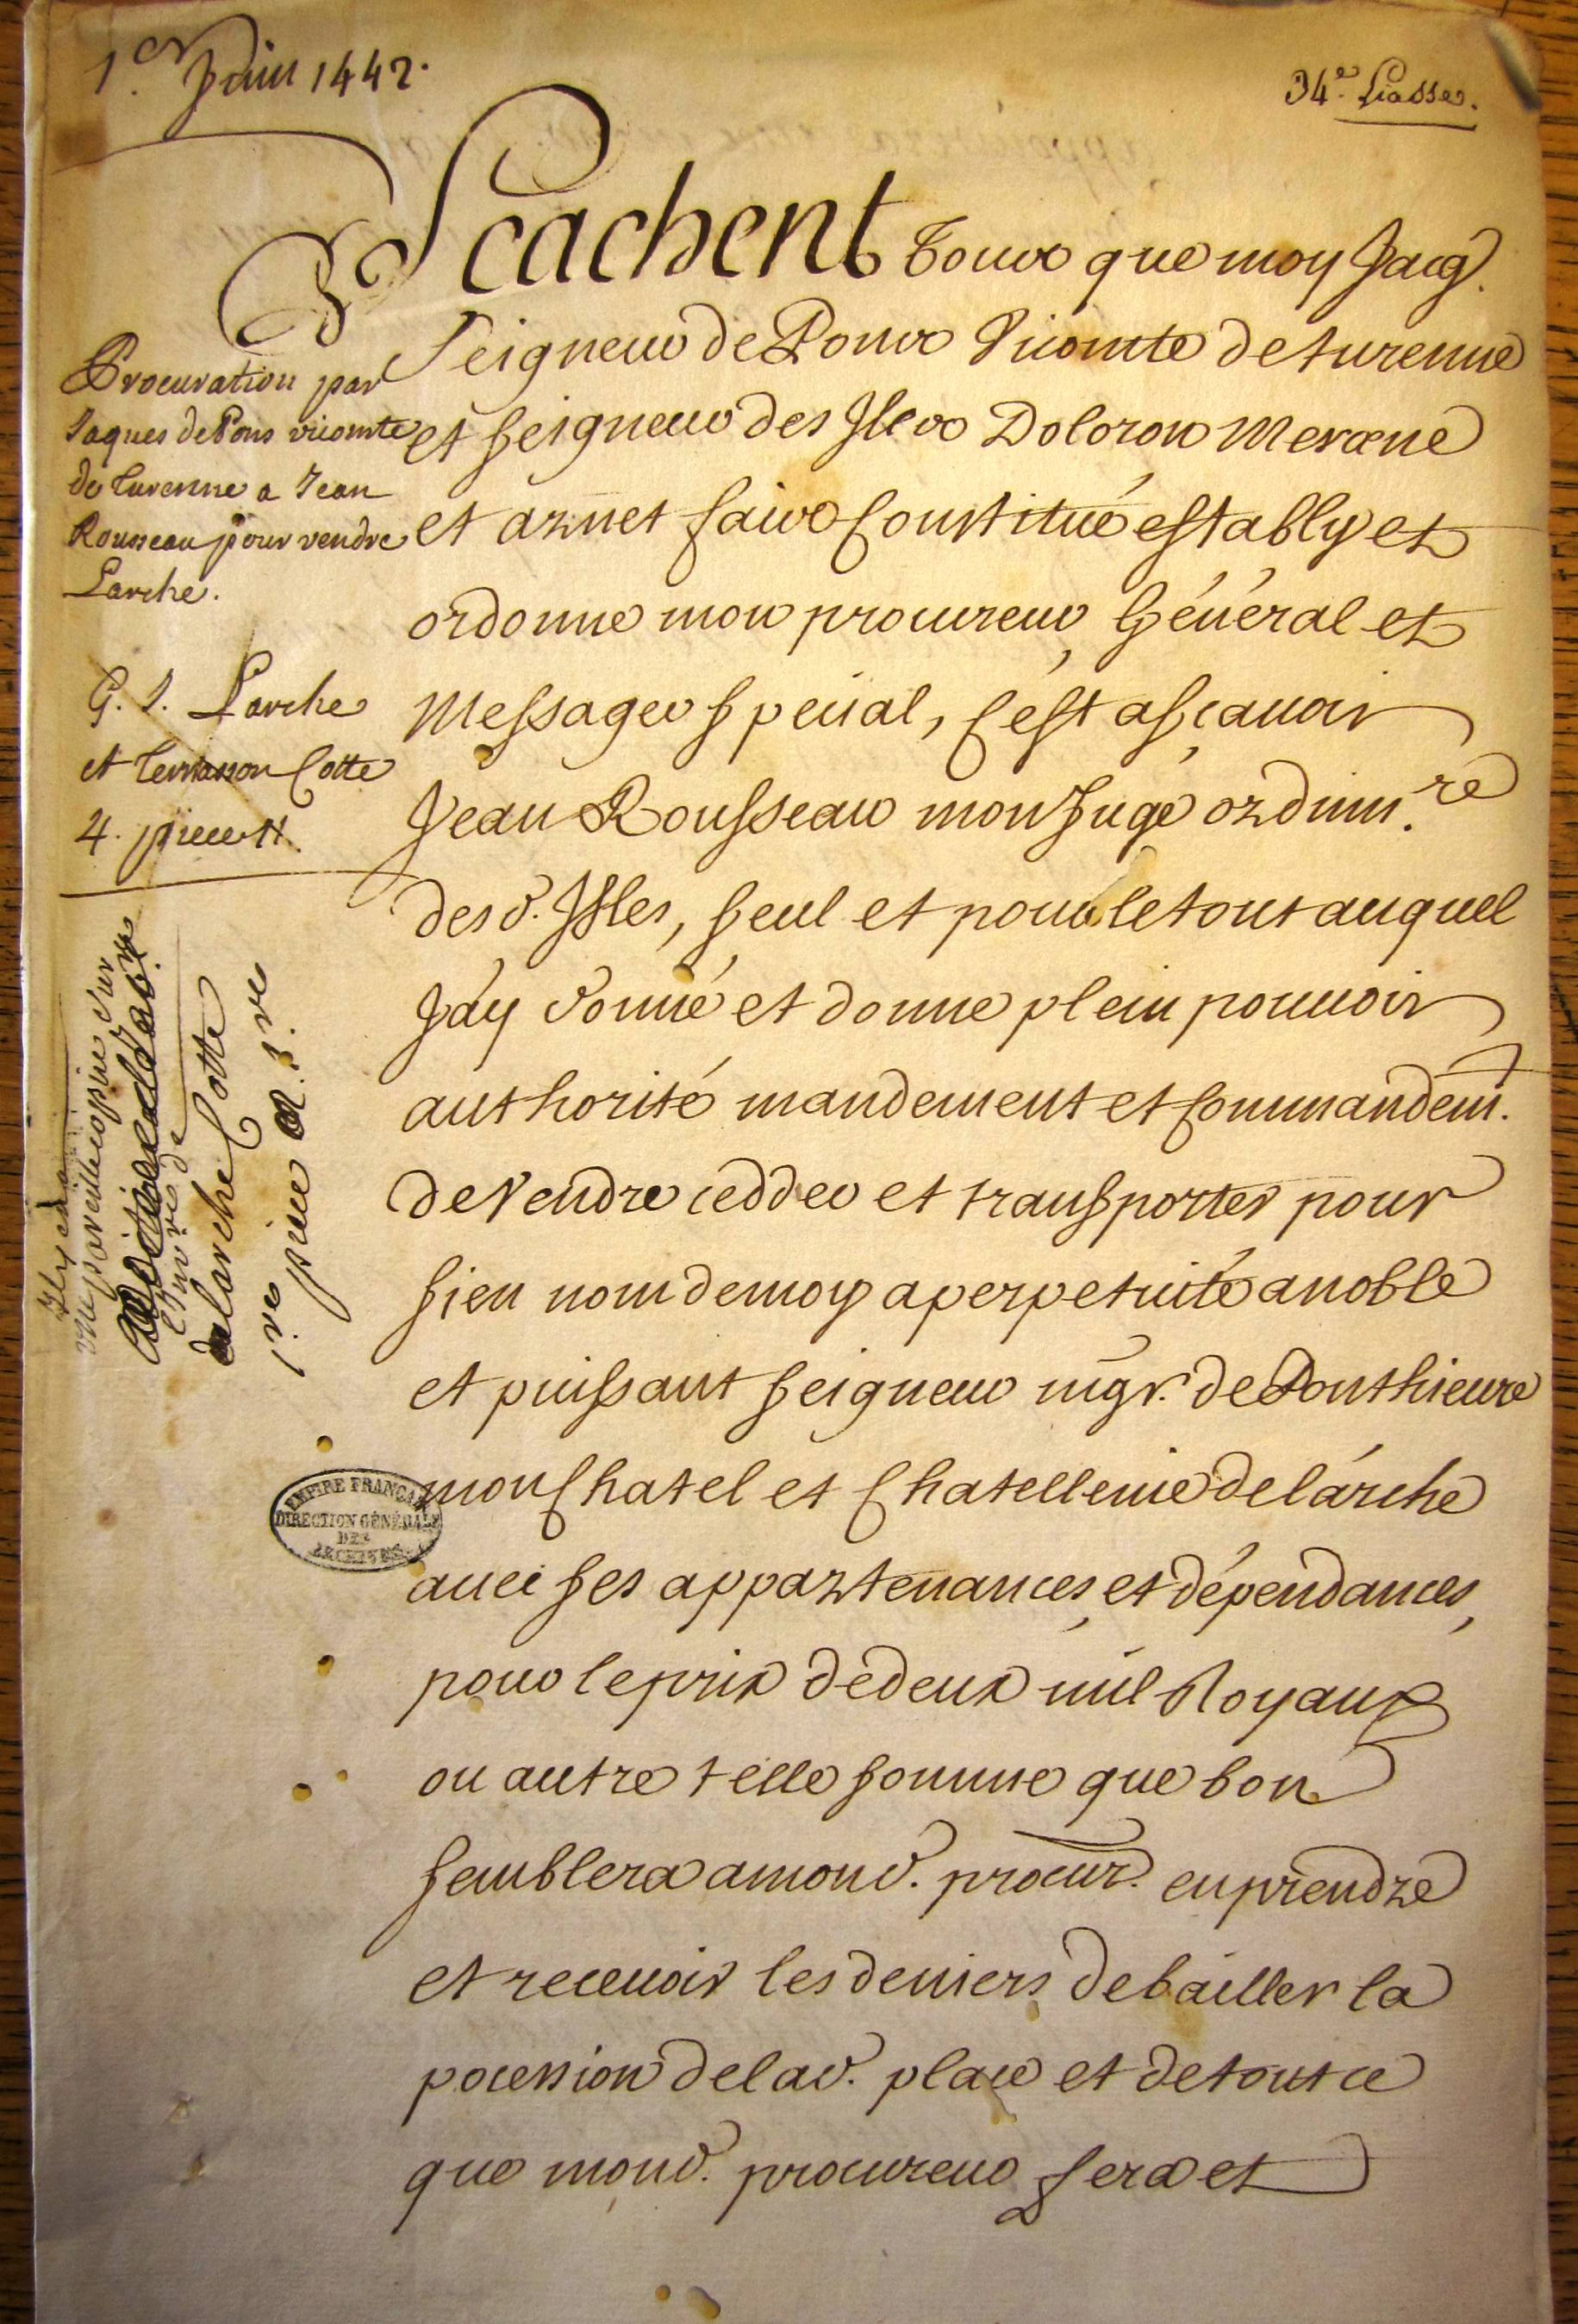 1.er Juin 1442.
34.e Liasse.
Scachent Tous que moy Jacq.
Seigneur de Pons Vicomte de turenne
et seigneur des Isles Doloron Marene
et aruet faire Constitué establyet
ordonne mon procureur Général et
Messager special, C'est asçavoir
Jean Rousseau mon Juge ordin.re
desd. Isles, seul et pour le tout auquel
J'ay donné et donne plein pouvoir
authorité mandement et Commandem.
de Vendre cedder et transporter pour
sieu nom de moy a perpetuité a noble
et puissant seigneur mgr. de Ponthieure
mon Chatel et Chatellenie de larche
avec ses appartenances, et dépendances,
pour le prix de deux mil Royaux
ou autre telle somme que bon
semblera a mond. procur. en prendre
et recevoir les deniers de bailler la
pocession de lad. place et de tout ce
que mond. procureur fera et
Procuration par
Jaques de Pons vicomte
de Turenne a Jean
Rousseau pour vendre
Larche.
G. 1. Larche
et Terrasson Cotte
4. piece 11.
Il y en a
une pareille copiée sur
l'Inv.re de
de larche Cotte
1.re piece
EMPIRE FRANÇAIS
DIRECTION GÉNÉRALE
DES
ARCHIVES